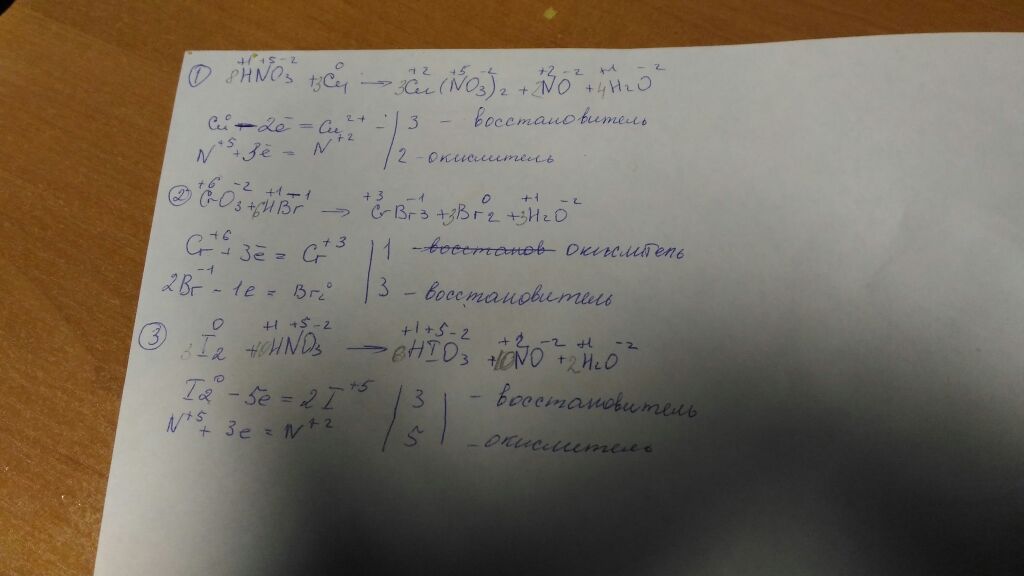 ① 8H⁺¹N⁺⁵O₃⁻² + 3Cu⁰ → 3Cu⁺²(N⁺⁵O₃⁻²)₂ + 2N⁺²O⁻² + 4H₂⁺¹O⁻²
Cu⁰ - 2ē = Cu²⁺ | 3 - восстановитель
N⁺⁵ + 3ē = N⁺² | 2 - окислитель
② Cr⁺⁶O₃⁻² + 6H⁺¹Br⁻¹ → Cr⁺³Br₃⁻¹ + 3Br₂⁰ + 3H₂⁺¹O⁻²
Cr⁺⁶ + 3ē = Cr⁺³ | 1 восстанов окислитель
2Br⁻¹ - 1e = Br₂⁰ | 3 - восстановитель
③ 3I₂⁰ + 10H⁺¹N⁺⁵O₃⁻² → 6H⁺¹I⁺⁵O₃⁻² + 10N⁺²O⁻² + 2H₂⁺¹O⁻²
I₂⁰ - 5e = 2I⁺⁵ | 3 | - восстановитель
N⁺⁵ + 3e = N⁺² | 5 | - окислитель